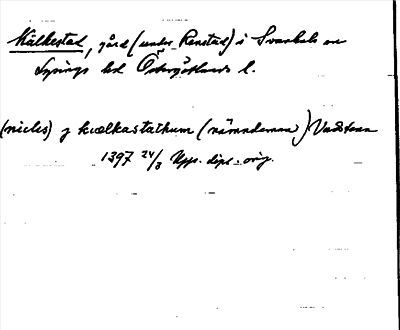 Kälkestad, gård (under Renstad) i Svanhals sn
Lysings hd Östergötlands l.
(niclis) j kvælkastathum (nämndeman) Vadstena
1397 24/3 Upps. dipl. orig.